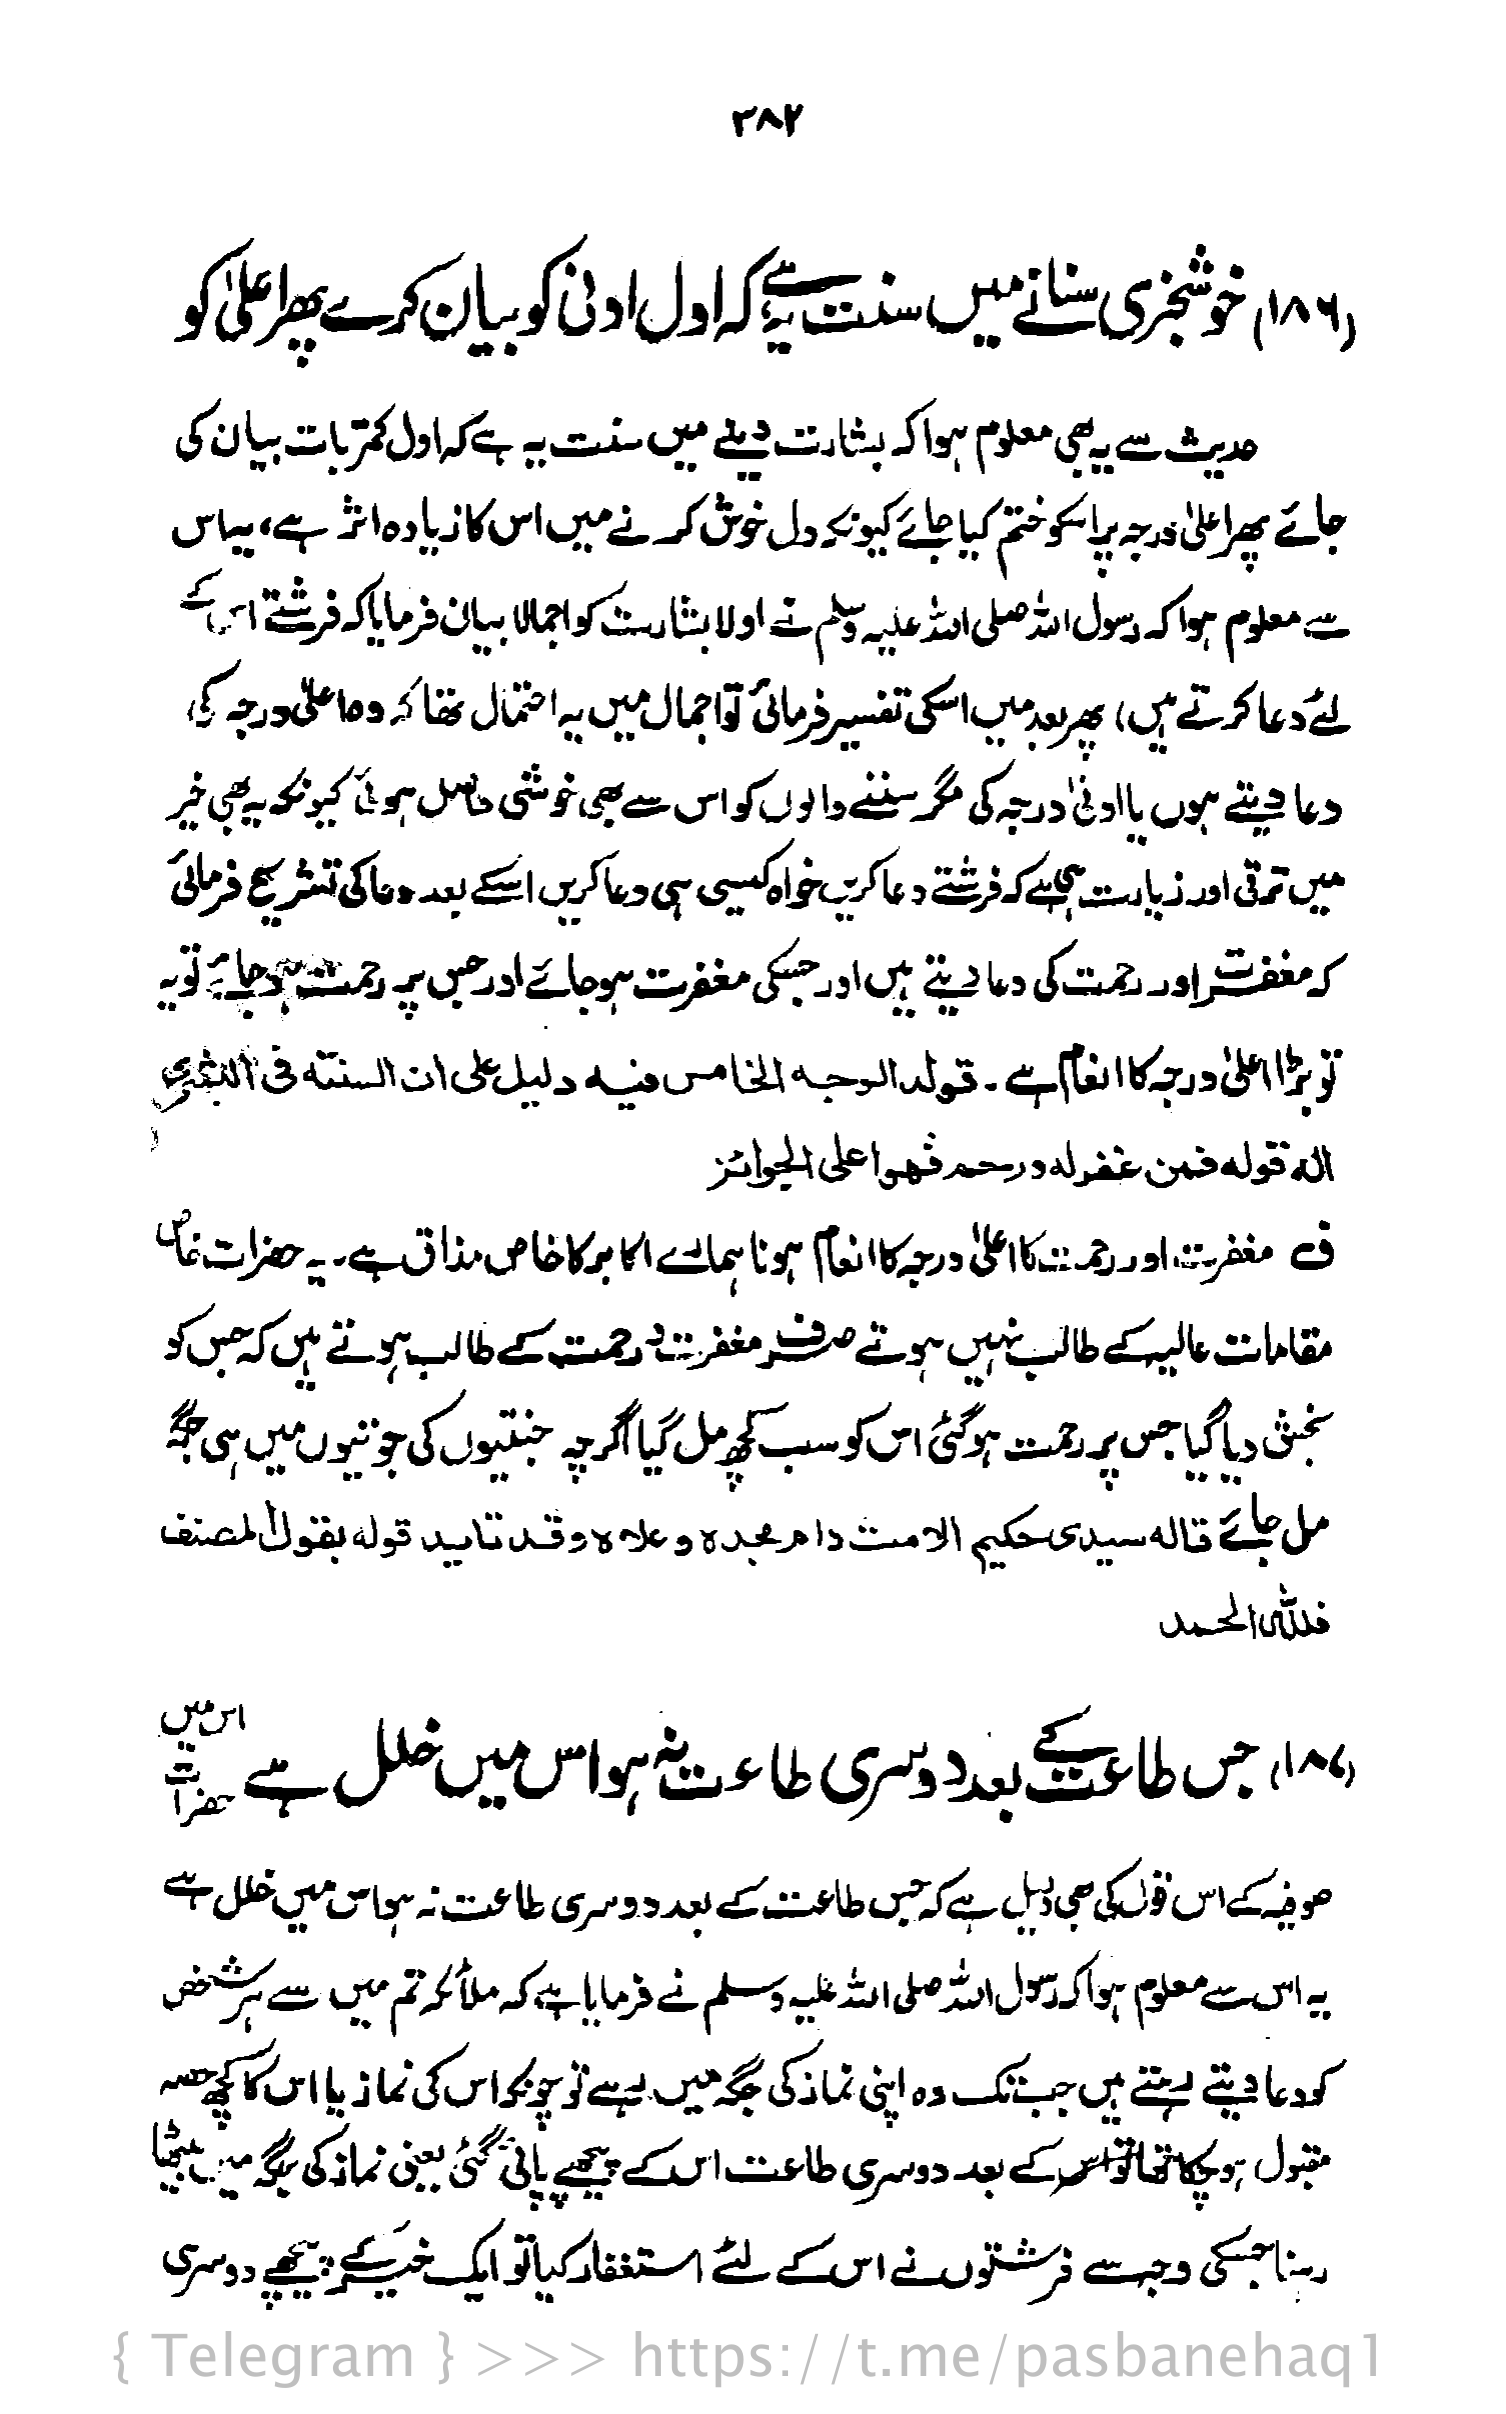 ۳۸۲
(۱۸۶) خوشخبری سنانے میں سنت یہ ہے کہ اول ادنیٰ کو بیان کرے پھر اعلیٰ کو
حدیث سے یہ بھی معلوم ہوا کہ بشارت دینے میں سنت یہ ہے کہ اول کمتر بات بیان کی
جائے پھر اعلیٰ درجہ پر اسکو ختم کیا جائے کیونکہ دل خوش کرنے میں اس کا زیادہ اثر ہے، یہ اس
سے معلوم ہوا کہ رسول اللہ صلی اللہ علیہ وسلم نے اولا بشارت کو اجمالا بیان فرمایا کہ فرشتے اس کے
لئے دعا کرتے ہیں) پھر بعد میں اسکی تفسیر فرمائی تو اجمال میں یہ احتمال تھا کہ وہ اعلیٰ درجہ کی
دعا دیتے ہوں یا ادنیٰ درجہ کی مگر سننے والوں کو اس سے بھی خوشی حاصل ہوئی کیونکہ یہ بھی خیر
میں ترقی اور زیارت ہی ہے کہ فرشتے دعا کریں خواہ کیسی ہی دعا کریں اسکے بعد دعا کی تشریح فرمائی
کہ مغفرت اور رحمت کی دعا دیتے ہیں اور جسکی مغفرت ہو جائے اور جس پر رحمت ہو جائے تو یہ
تو بڑا اعلیٰ درجہ کا انعام ہے۔ قولہ الوجہ الخامس فیہ دلیل علی ان السنتہ فی البشری
الہ قولہ فمن غفر لہ ورحم فھو اعلی الجوائز
ف مغفرت اور رحمت کا اعلیٰ درجہ کا انعام ہونا ہمارے اکابر کا خاص مذاق ہے۔ یہ حضرات خاص
مقامات عالیہ کے طالب نہیں ہوتے صرف مغفرت و رحمت کے طالب ہوتے ہیں کہ جس کو
بخش دیا گیا جس پر رحمت ہو گئی اس کو سب کچھ مل گیا اگرچہ جنتیوں کی جوتیوں میں ہی جگہ
مل جائے قالہ سیدی حکیم الامت دام مجدہ و علاہ وقد تاید قولہ بقول المصنف
فللہ الحمد
(۱۸۷) جس طاعت کے بعد دوسری طاعت نہ ہو اس میں خلل ہے اس میں حضرات
صوفیہ کے اس قول کی بھی دلیل ہے کہ جس طاعت کے بعد دوسری طاعت نہ ہو اس میں خلل ہے
یہ اس سے معلوم ہوا کہ رسول اللہ صلی اللہ علیہ وسلم نے فرمایا ہے کہ ملائکہ تم میں سے ہر شخص
کو دعا دیتے رہتے ہیں جب تک وہ اپنی نماز کی جگہ میں رہے تو چونکہ اس کی نماز یا اس کا کچھ حصہ
مقبول ہو چکا تھا تو اس کے بعد دوسری طاعت اس کے پیچھے پائی گئی یعنی نماز کی جگہ میں بیٹھا
رہنا جسکی وجہ سے فرشتوں نے اس کے لئے استغفار کیا تو ایک خیر کے پیچھے دوسری
{ Telegram } >>> https://t.me/pasbanehaq1